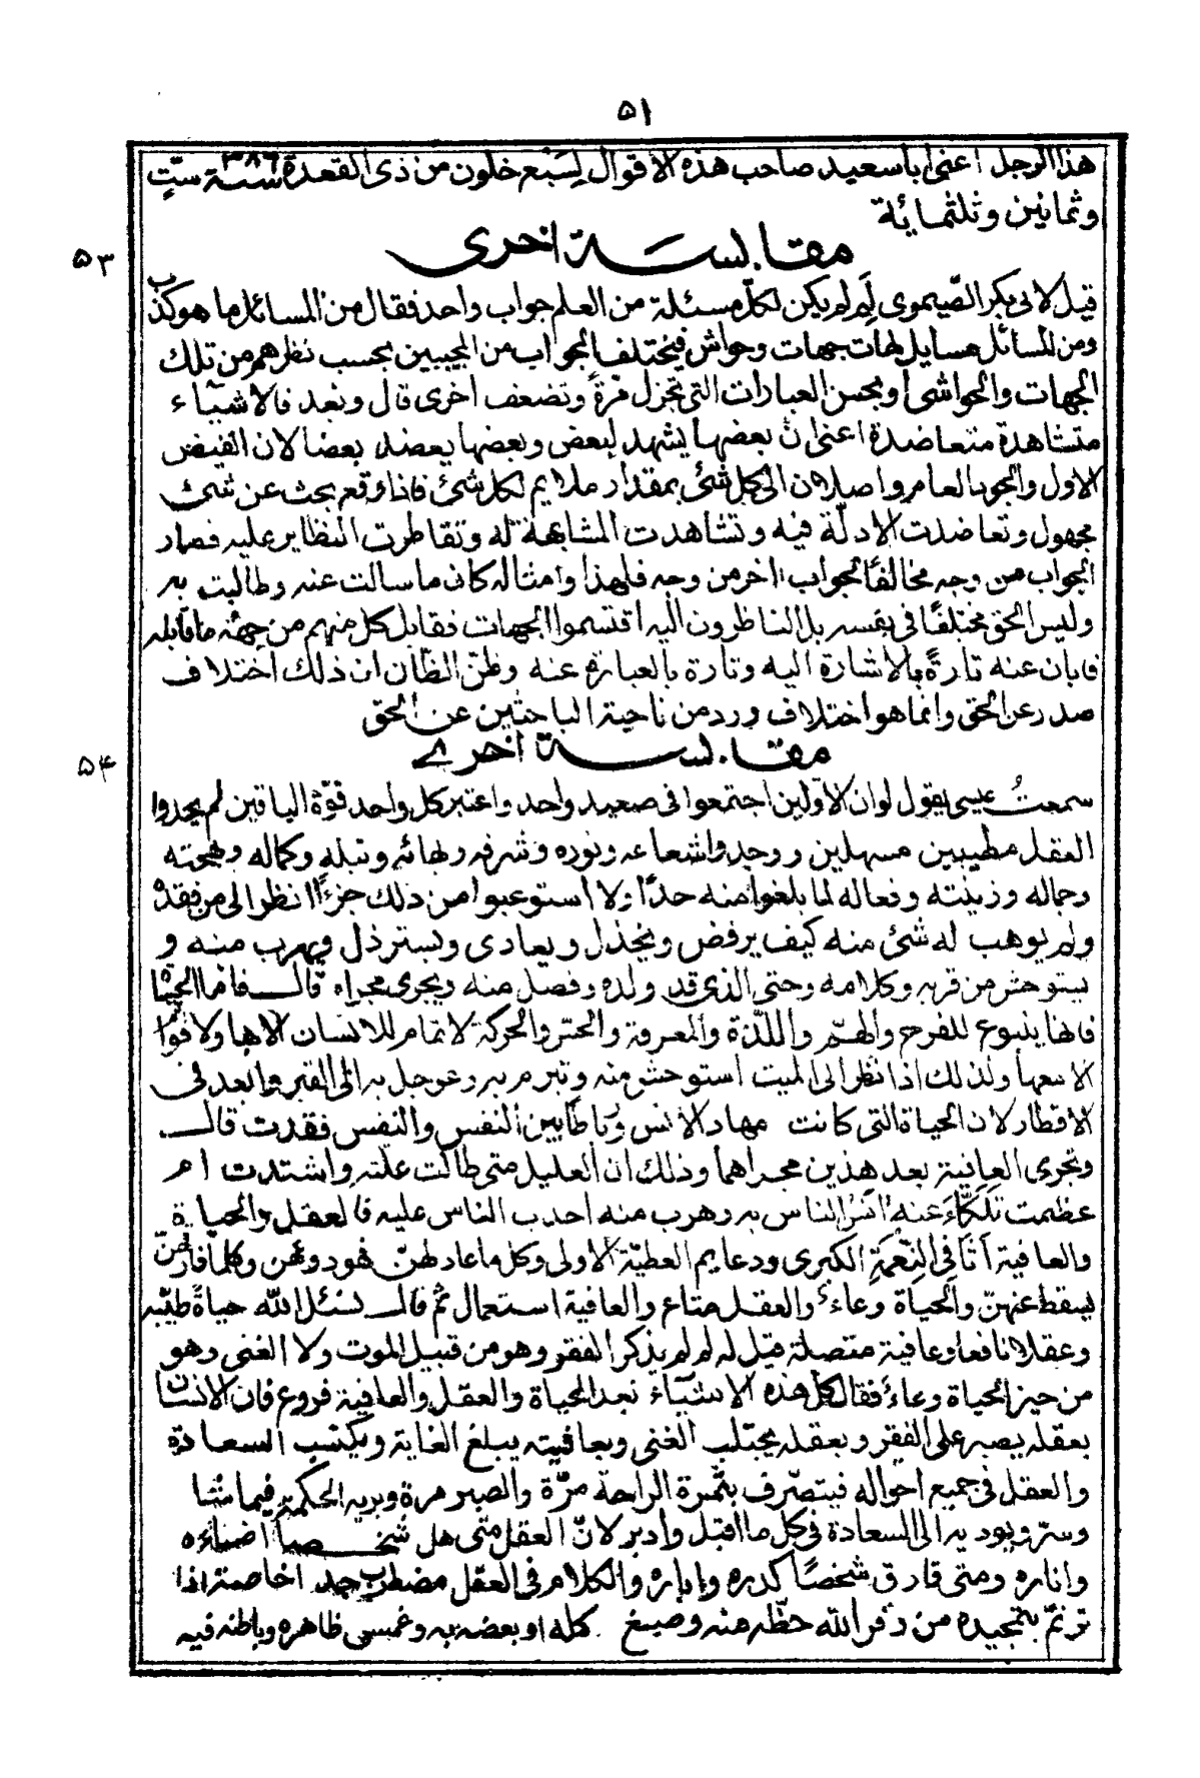 ۵۱
هذا الرجل اعنى ابا سعيد صاحب هذه الاقوال لسَبْع خلون من ذى القعدة سنة ۳۸۶ ستٍّ
وثمانين وثلثمائة
مقابسة اخرى
۵۳
قيل لابى بكر الصّيموى لِمَ لم يكن لكلّ مسئلة من العلم جواب واحد فقال من المسائل ما هو كذب
ومن المسائل مسايل لهات جهات وحواش فيختلف الجواب من المجيبين بحسب نظرهم من تلك
الجهات والحواشى او بحسن العبارات التى تجزل مرةً وتضعف اخرى قال وبعد فالاشياء
متشاهدة متعاضدة اعنى ان بعضها يشهد لبعض وبعضها يعضد بعضا لان الفيض
الاول والجود العام واصلان الى كل شئ بمقدار ملايم لكل شئ فاذا وقع بحث عن شئ
مجهول وتعاضدت الادلّة فيه وتشاهدت المشابهة له وتقاطرت النظاير عليه فصار
الجواب من وجه مخالفًا لجواب اخر من وجه فلهذا وامثاله كان ما سالت عنه وطالبت به
وليس الحق مختلفًا فى نفسه بل الناظرون اليه اقتسموا الجهات فقابل كل منهم من جهة ما قابله
فابان عنه تارةً بالاشارة اليه وتارة بالعبارة عنه وظنّ الظان ان ذلك اختلاف
صدر عن الحق وانما هو اختلاف ورد من ناحية الباحثين عن الحق
مقابسة اخرى
۵۴
سمعتُ عيسى يقول لو ان الاوّلين اجتمعوا فى صعيد واحد واعتبر كل واحد قوّة الباقين لم يجدوا
العقل مطيبين مسهلين ووجدوا شعاعه ونوره وشرفه وبهائه ونبله وكماله وبهجته
وجماله وزينته وفعاله لما بلغوا منه حدًّا ولا استوعبوا من ذلك جزءًا انظر الى من فقده
ولم يوهب له شئ منه كيف يرفض ويخذل ويعادى ويسترذل ويهرب منه و
يستوحش من قربه وكلامه وحتى الذى قد ولده وفصل منه ويجرى مجراه قال فاما الحياة
فانها ينبوع للفرح والهمّ واللذّة والمعرفة والحسّ والحركة لا تمام للانسان الا بها ولا قوام
الا معها ولذلك اذا نظر الى الميت استوحش منه وتبرم به وعوجل به الى القبر وابعد فى
الاقطار لان الحياة التى كانت مهاد الانس ورباطا بين النفس والنفس فقدت قال
وتجرى العافية بعد هذين مجراهما وذلك ان العليل متى طالت علته واشتدت ام
عظمت تَلَكَّاءَ عنه آنَسُ الناس به وهرب منه احدب الناس عليه فالعقل والحياة
والعافية أثافى النِّعمَةِ الكبرى ودعايم العطيّة الاولى وكل ما عاد لهنّ فهو دونهن وكلما فارقهنّ
يسقط عنهنّ والحياة وعاءٌ والعقل متاع والعافية استعمال ثم قال نسئل الله حياةً طيّبه
وعقلا نافعا وعافية متصلة قيل له لم لم يذكر الفقر وهو من قبيل الموت ولا الغنى وهو
من حيز الحياة وعاء فقال كل هذه الاشياء بعد الحياة والعقل والعافية فروع فان الانسان
بعقله يصبر على الفقر وبعقله يجتلب الغنى وبعافيته يبلغ الغاية ويكتسب السعادة
والعقل فى جميع احواله فيتصرّف بثمرة الراحة مرّة والصبر مرة ويريه الحكمة فيما شا
وسرّ ويوديه الى السعادة فى كل ما اقبل وادبر لانّ العقل متى هل شخصا اضاءه
واناره ومتى فارق شخصًا كدره واباره والكلام فى العقل مضطرب جدا خاصة اذا
ترنمّ بتمجيده من وفر الله حظّه منه وصبغ كله او بعضه به وغمس ظاهره وباطنه فيه